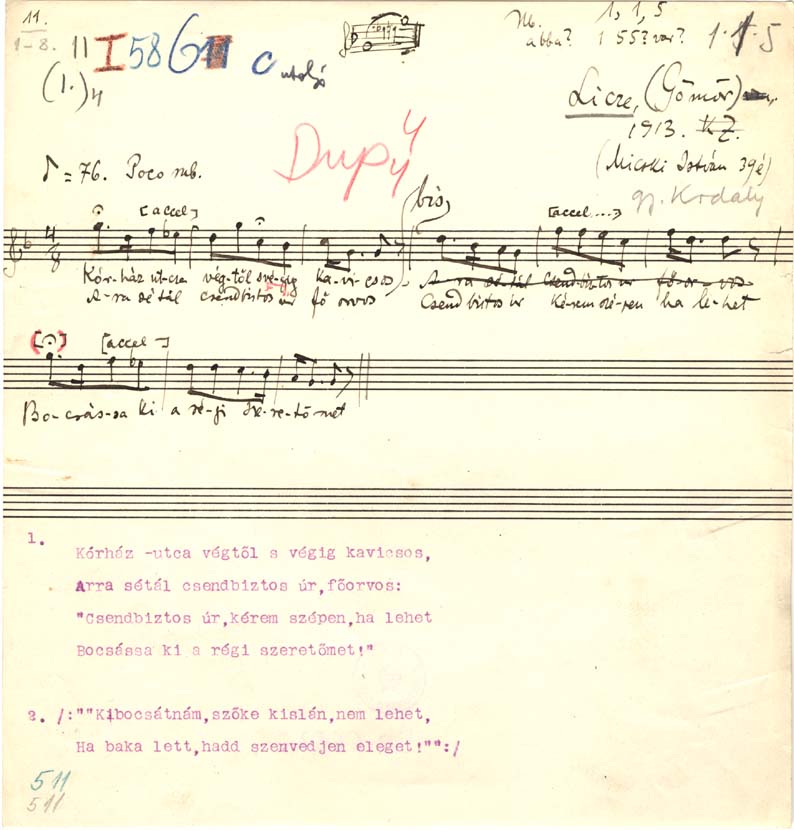 11.
1-8.
11 I 58611 c utolsó
(1.) 4
M. 1, 1, 5
abba? 1 55? var? 1·1·5
Licze, (Gömör)
1913. KZ.
(Micski István 39é)
gy. Kodály
♪=76. Poco rub.
Dup 4
bis
[accel] [accel...]
Kór-ház utca vég-től s vé-gig ka-vi-csos A-ra sé-tál Csendbiztos úr fő-or-vos
A-ra sé tál csendbiztos úr fő orvos Csendbiztos úr Ké-rem szé-pen ha le-het
[accel]
Bo-csás-sa ki a ré-gi sze-re-tő-met
1.
Kórház -utca végtől s végig kavicsos,
Arra sétál csendbiztos úr,főorvos:
"Csendbiztos úr,kérem szépen,ha lehet
Bocsássa ki a régi szeretőmet!"
2. /:""Kibocsátnám,szőke kislán,nem lehet,
Ha baka lett,hadd szenvedjen eleget!"":/
511
511